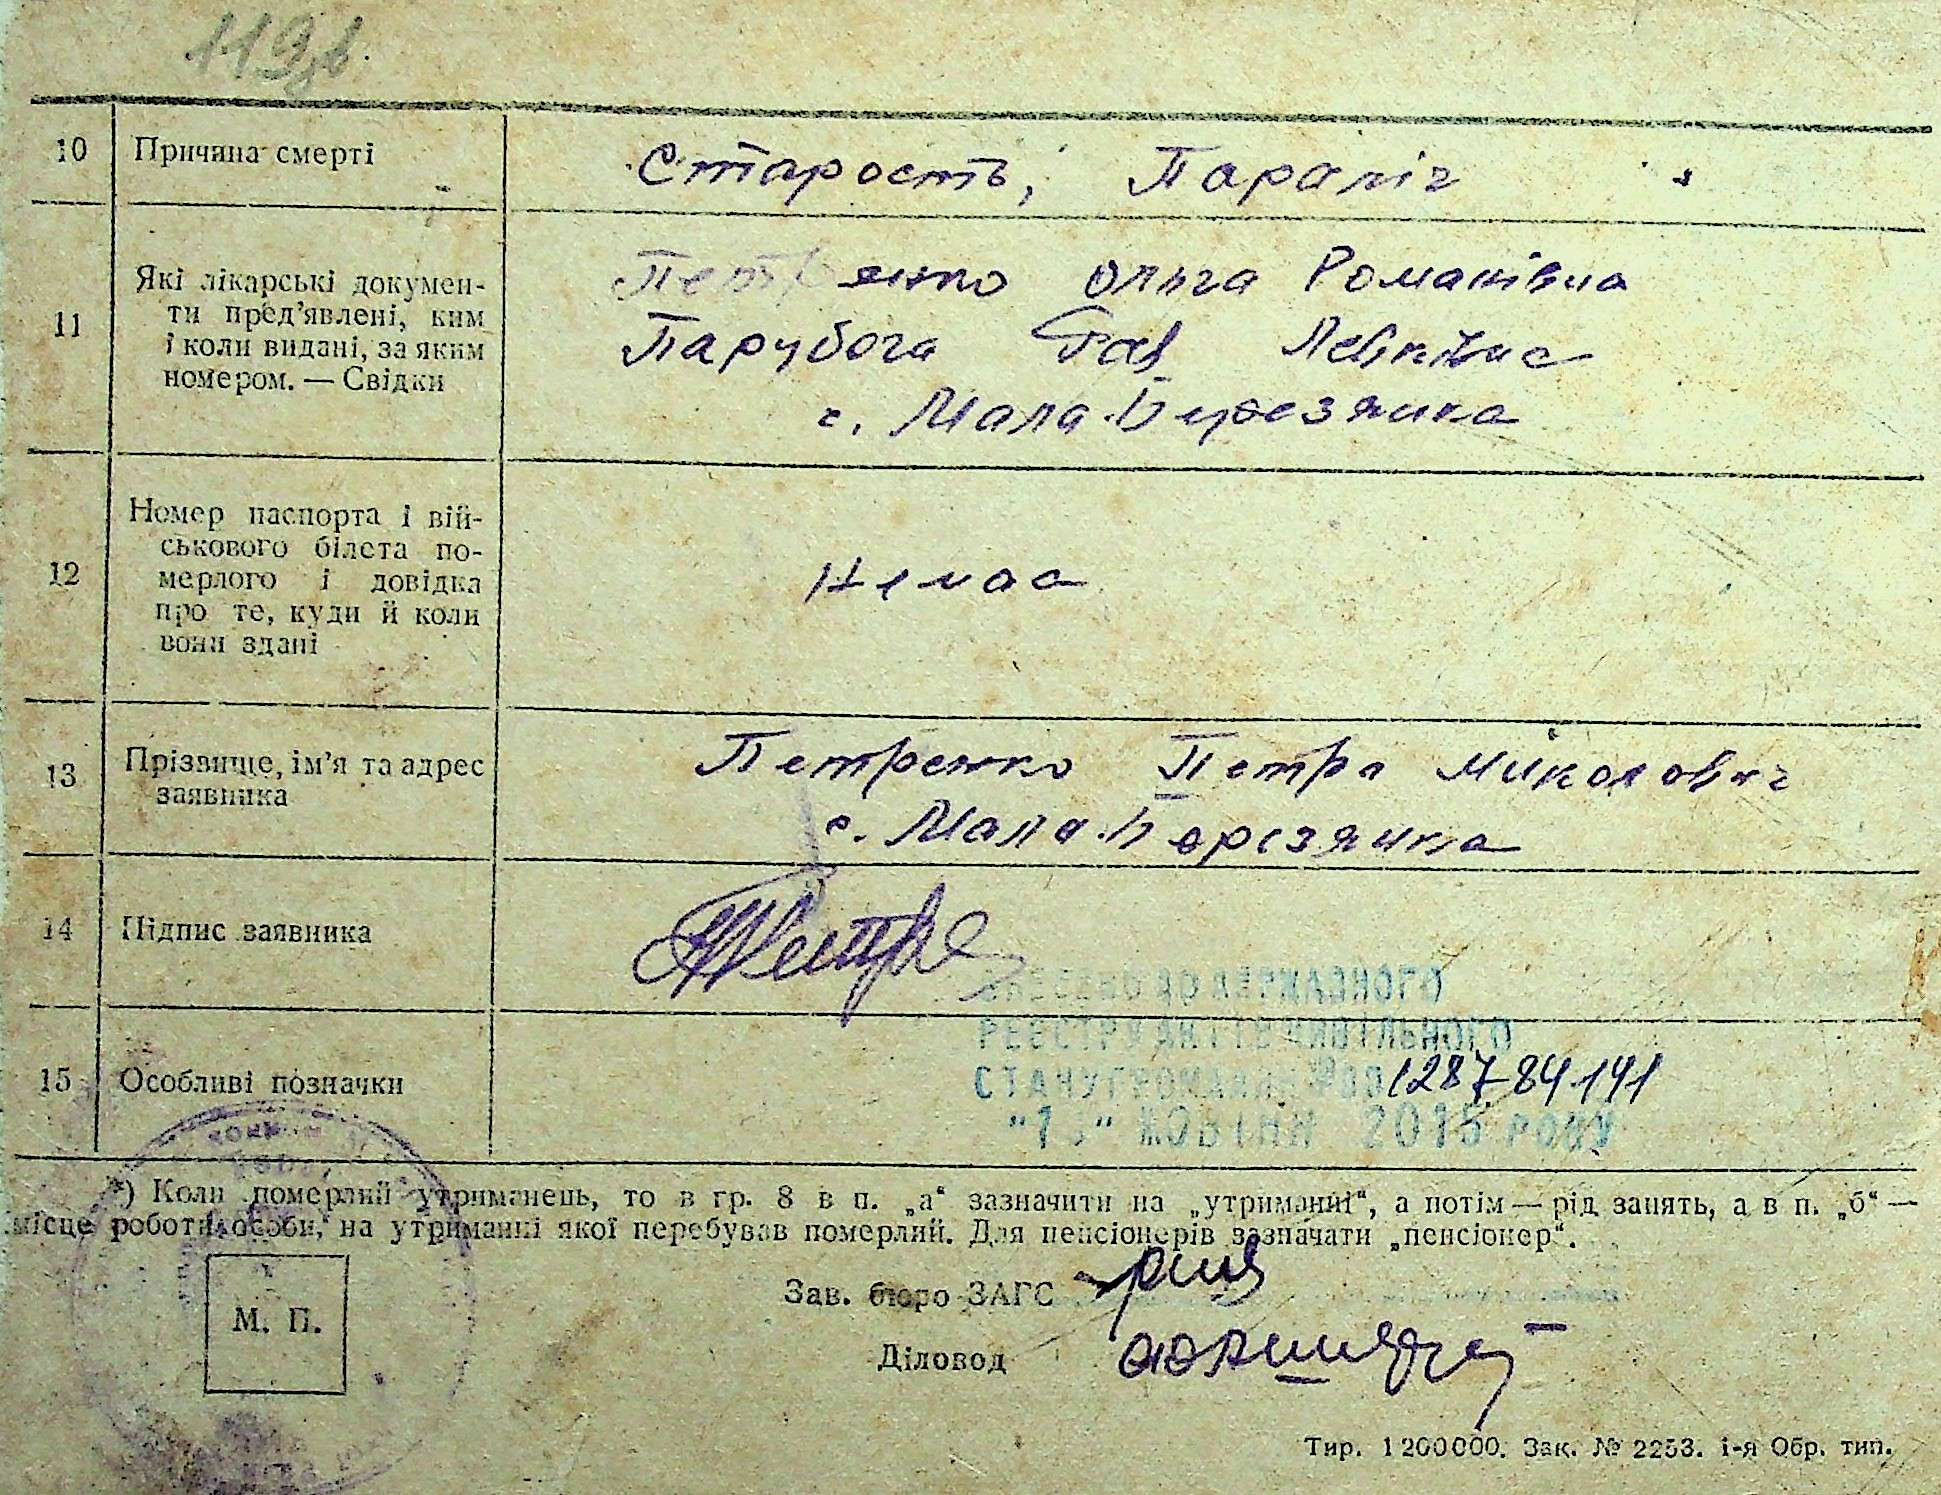 119зв.
10 Причина смерті Старость, Параліч
11 Які лікарські докумен-
ти пред'явлені, ким
і коли видані, за яким
номером. — Свідки
Петренко Ольга Романівна
Парубоча Левківна
с. Мала-Березянка
12 Номер паспорта і вій-
ськового білета по-
мерлого і довідка
про те, куди й коли
вони здані
Немає
13 Прізвище, ім'я та адрес
заявника
Петренко Петро Миколович
с. Мала-Березянка
14 Підпис заявника
15 Особливі позначки
ВНЕСЕНО ДО ДЕРЖАВНОГО
РЕЄСТРУ АКТІВ ЦИВІЛЬНОГО
СТАНУ ГРОМАДЯН №00128784141
ЖОВТНЯ 2015 РОКУ
*) Коли померлий утриманець, то в гр. 8 в п. „а“ зазначити на „утриманні“, а потім — рід занять, а в п. „б“ —
місце роботи особи, на утриманні якої перебував померлий. Для пенсіонерів зазначати „пенсіонер“.
М. П.
Зав. бюро ЗАГС
Діловод
Тир. 1200000. Зак. № 2253. 1-я Обр. тип.